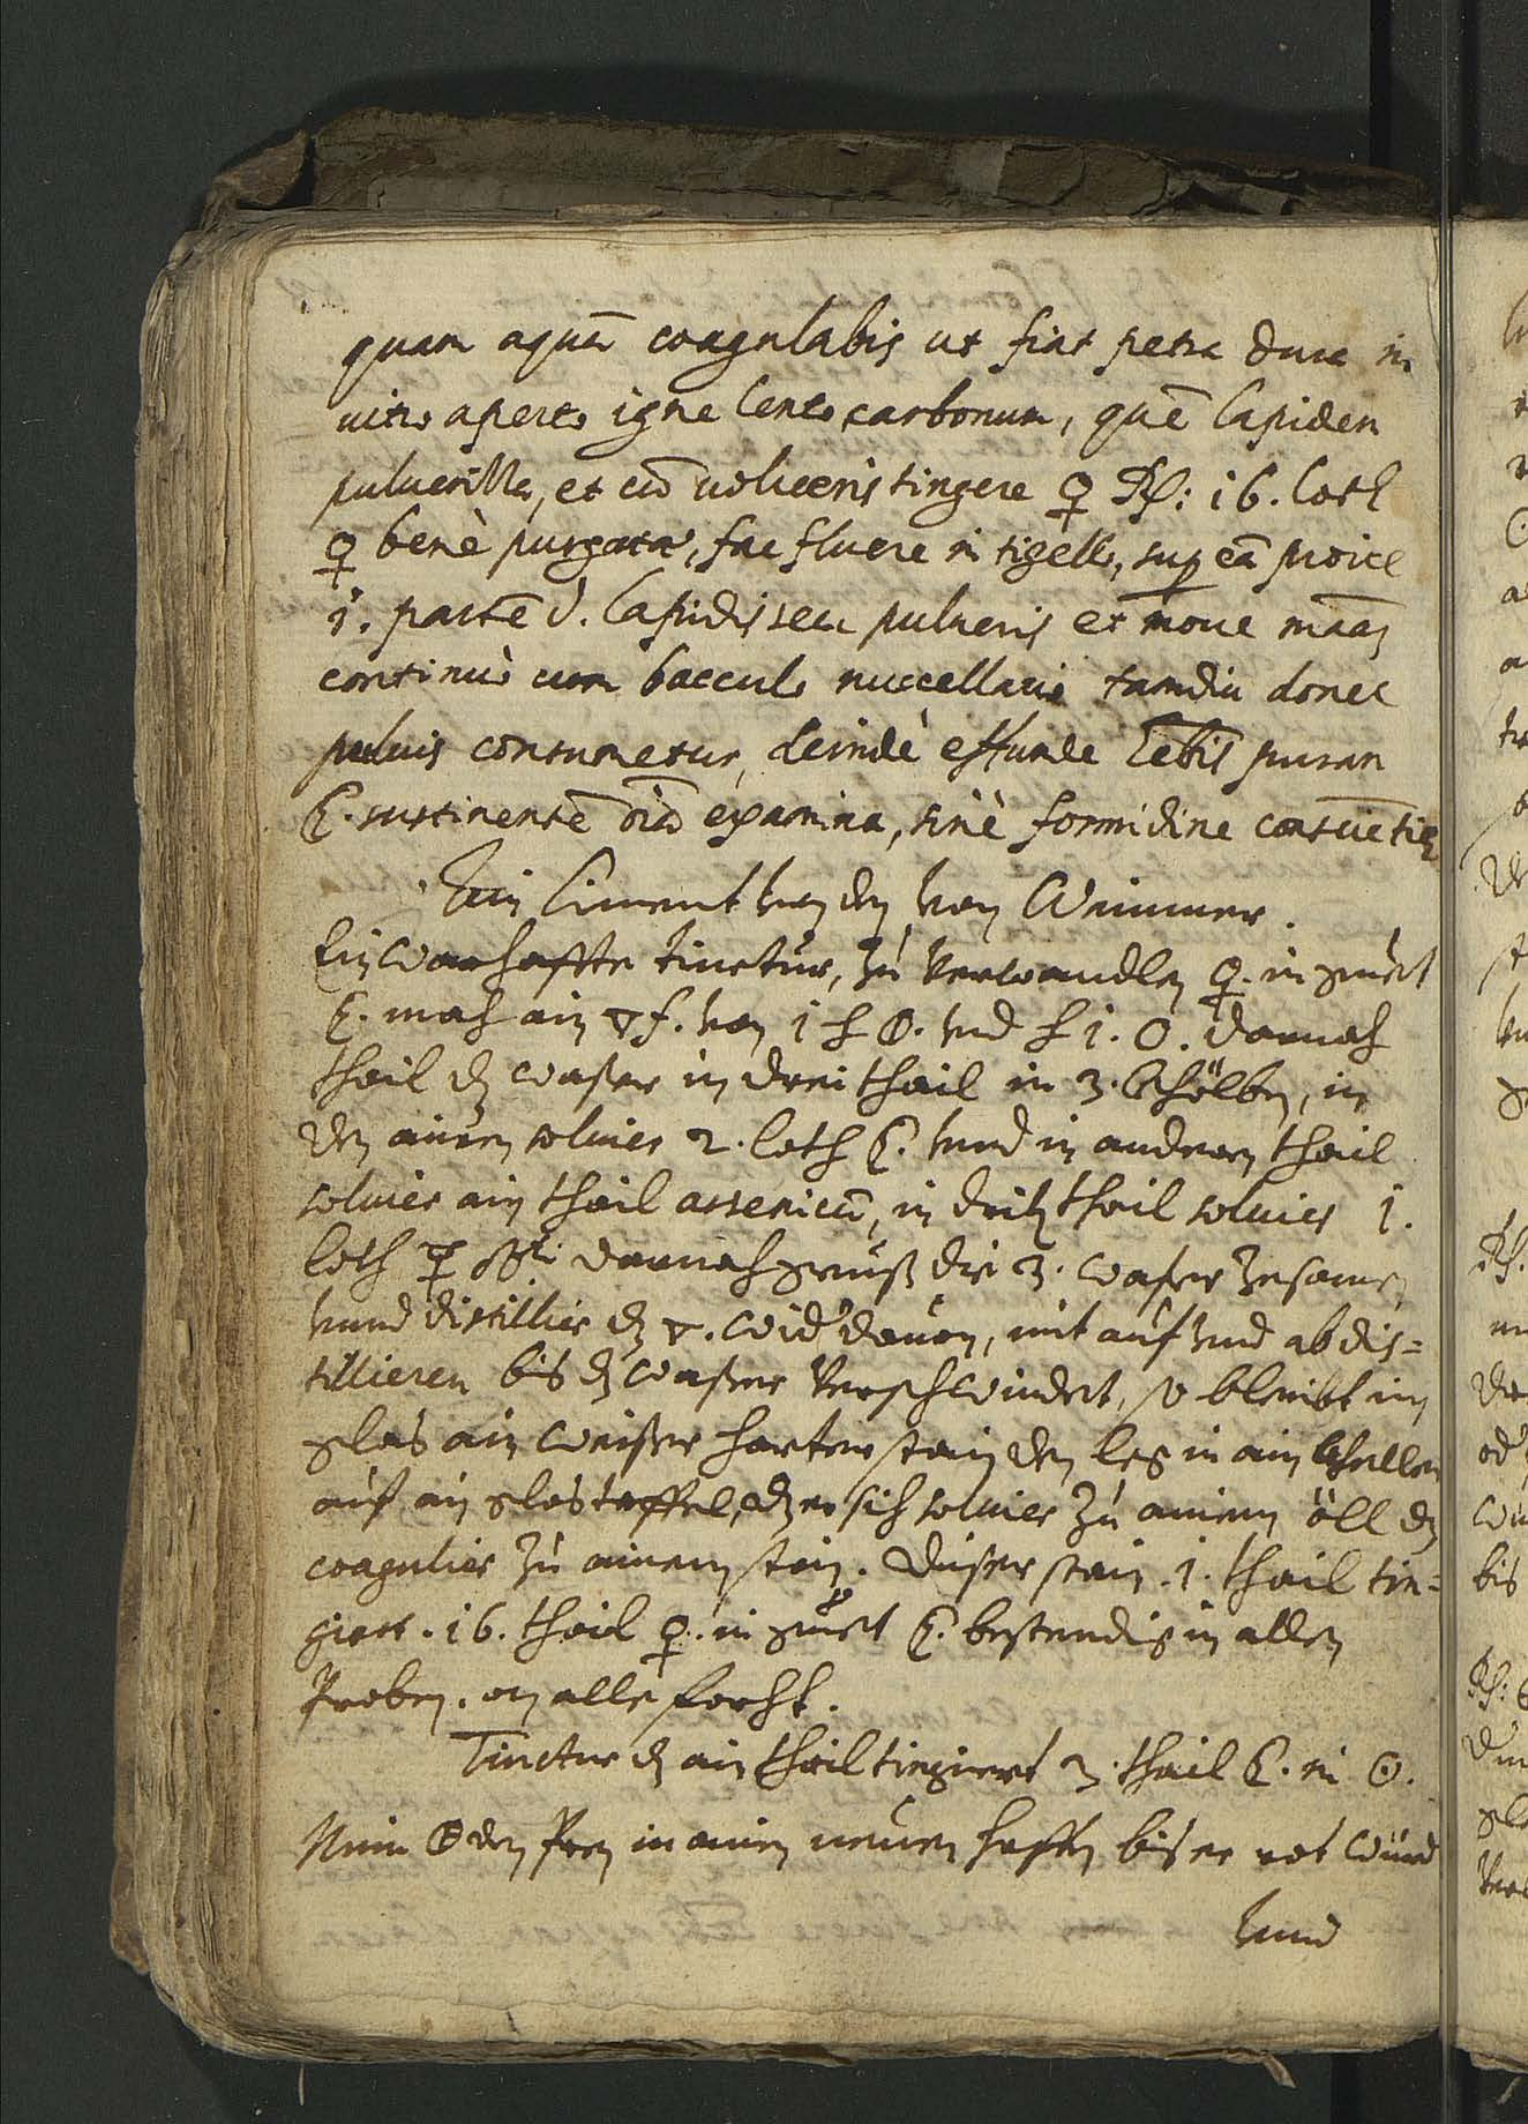 quam aquā coagulabis ut fiat petra dura in
uitro aperto igne lento carbonum, quē lapidem
puluerisa, et cū uolueris tingere ♀ ℞: 16. loth
♀ benè purgata, fac fluere in tigello, sup eā proice
1. partē d. lapidis seu pulueris et moue
continuò cum bacculo nuccellario tamdiu donec
puluis consumetur, deindè effunde puram
☾. sustinentē oīa examina, sinè formidine
Ein Ciment von den von Wimmer.
Ein warhaffte tinctur, zu verwandlen ♀. in guet
☾. mach ain 🜄 f. von 1 ℔ . vnd ℔ 1. . darnach
thail dz waßer in drei thail in 3. kholben, in
den ainen soluier 2. loth ☾. vnnd in andern thail
soluier ain thail arsenicū, in drith thail soluier 1.
loth darnach geuß die 3. waßer zesamen
vnnd distillier dz 🜄. wid dauon, mit auf vnd ab dis=
tillieren bis dz waßer verschwindet, so bleibt im
glas ain weißer harter stain den leg in ain kheller
auf ain glastaffel, dz er sich soluier zu ainem öll dz
coagulier zu ainem stain. Dieser stain .1. thail tin=
giert .16. thail ♀. in guet ☾. bestendig in allen
Proben. on alle forcht.
Tinctur dz ain thail tingiert 3. thail ☾. in ☉.
Nim den Pren in ainen neuen haffen bis er rot würd
vnnd